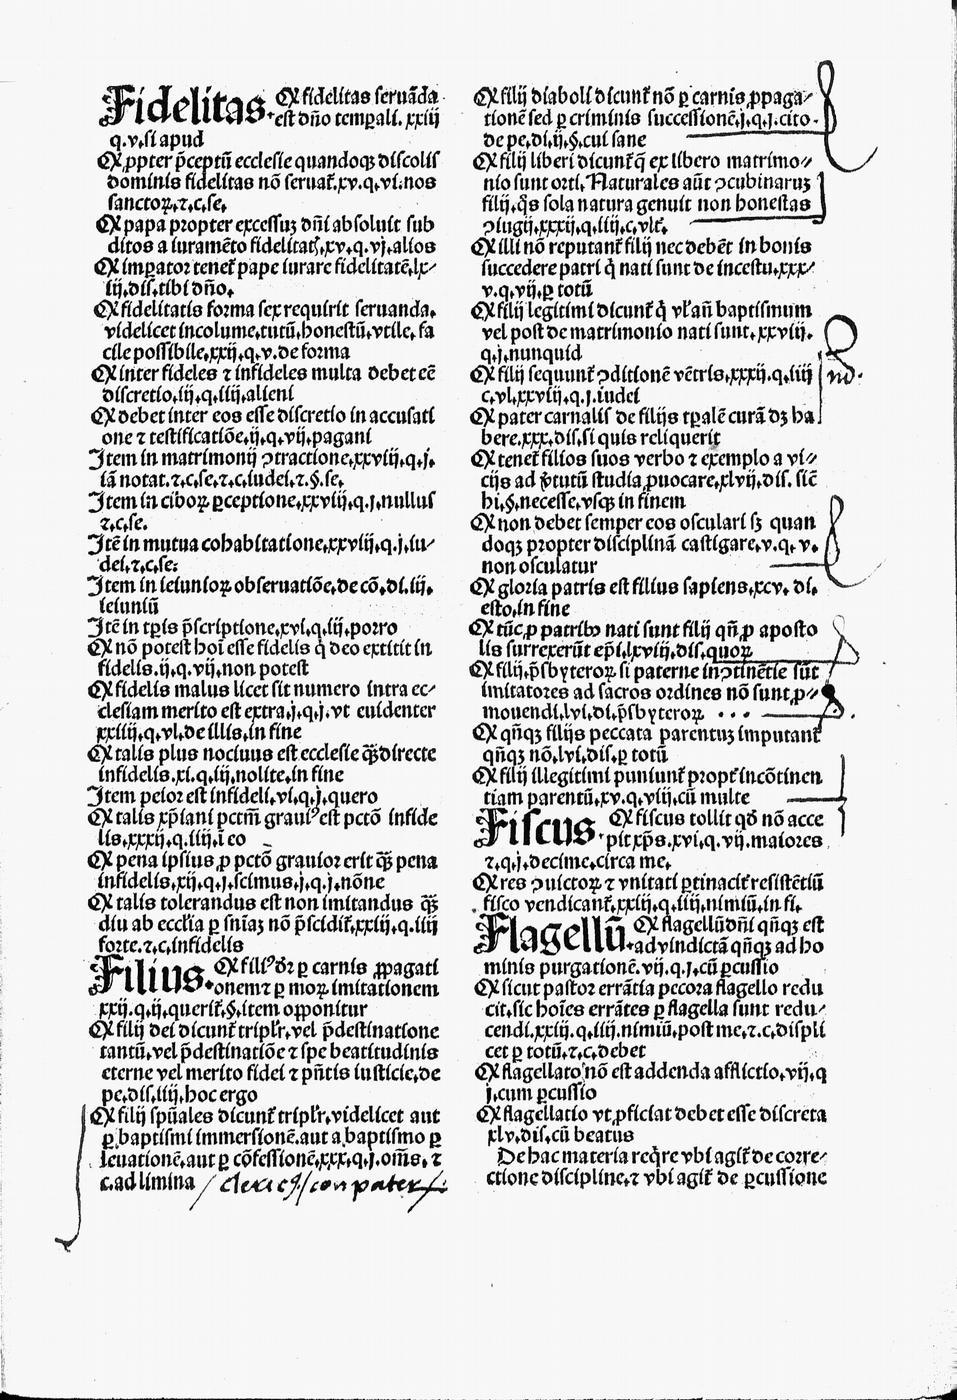 Fidelitas. Q fidelitas seruãda
est dño temꝑali. xxiij
q.v.si apud
Q ꝓpter p̃ceptũ ecclesie quandoqꝫ discolis
dominis fidelitas nõ seruat̃.xv.q.vi.nos
sanctoꝝ.⁊.c.se.
Q papa propter excessuꝫ dñi absoluit sub
ditos a iuramẽto fidelitatꝭ.xv.q.vj.alios
Q imꝑator tenet̃ pape iurare fidelitatẽ.lx⸗
iij.dis.tibi dño.
Q fidelitatis forma sex requirit seruanda.
videlicet incolume.tutũ.honestũ.vtile.fa
cile possibile.xxij.q.v.de forma
Q inter fideles ⁊ infideles multa debet eẽ
discretio.ij.q.iij.alieni
Q debet inter eos esse discretio in accusati
one ⁊ testificatiõe.ij.q.vij.pagani
Item in matrimonij ꝯtractione.xxviij.q.j.
iã notat.⁊.c.se.⁊.c.iudei.⁊.§.se.
Item in ciboꝝ ꝑceptione.xxviij.q.j.nullus
⁊.c.se.
Itẽ in mutua cohabitatione.xxviij.q.j.iu⸗
dei.⁊.c.se:
Item in ieiunioꝝ obseruatiõe.de cõ.di.iij.
ieiuniũ
Itẽ in tꝑis p̃scriptione.xvi.q.iij.porro
Q nõ potest hoi esse fidelis q̃ deo extitit in
fidelis.ij.q.vij.non potest
Q fidelis malus licet sit numero intra ec⸗
clesiam merito est extra.j.q.j.vt euidenter
xxiiij.q.vl.de illis.in fine
Q talis plus nociuus est ecclesie q̃ꝫ directe
infidelis.xi.q.iij.nolite.in fine
Item peior est infideli.vi.q.j.quero
Q talis xp̃iani pctm̃ grauiꝰ est pctõ infide
lis.xxxij.q.iiij.ĩ eo
Q pena ipsius ꝓ pctõ grauior erit q̃ꝫ pena
infidelis.xij.q.j.scimus.j.q.j.nõne
Q talis tolerandus est non imitandus q̃ꝫ
diu ab ecclĩa ꝑ sniãꝫ nõ p̃scidit̃.xxiij.q.iiij
forte.⁊.c.infidelis
Filius. Q filiꝰ dr̃ ꝑ carnis ꝓpagati
onem⁊ ꝑ moꝝ imitationem
xxij.q.ij.querit̃.§.item opponitur
Q filij dei dicunt̃ triplr̃.vel p̃destinatione
tantũ.vel p̃destinatiõe ⁊ spe beatitudinis
eterne vel merito fidei ⁊ p̃ntis iusticie.de
pe.dis.iiij.hoc ergo
Q filij spũales dicunt̃ triplr̃.videlicet aut
ꝑ baptismi immersionẽ.aut a baptismo ꝑ
leuationẽ.aut ꝑ cõfessionẽ.xxx.q.j.om̃s.⁊
c.ad limina / con pater
Q filij diaboli dicunt̃ nõ ꝑ carnis ꝓpaga⸗
tionẽ sed ꝑ criminis successionẽ.j.q.j.cito.
de pe.di.ij.§.cui sane
Q filij liberi dicunt̃ q̃ ex libero matrimo⸗
nio sunt orti. Naturales aũt ꝯcubinaruꝫ
filij.q̃s sola natura genuit non honestas
ꝯiugij.xxxij.q.iiij.c.vlt̃.
Q illi nõ reputant̃ filij nec debẽt in bonis
succedere patri q̃ nati sunt de incestu.xxx⸗
v.q.vij.ꝑ totũ
Q filij legitimi dicunt̃ q̃ vl̃ añ baptismum
vel post de matrimonio nati sunt.xxviij.
q.j.nunquid
Q filij sequunt̃ ꝯditionẽ vẽtris.xxxij.q.iiij
c.vl.xxviij.q.j.iudei
Q pater carnalis de filijs tꝑalẽ curã dꝫ ha
bere.xxx.dis.si quis reliquerit
Q tenet̃ filios suos verbo ⁊ exemplo a vi⸗
cijs ad v̾tutũ studia ꝓuocare.xlvij.dis. sicẽ
hi.§.necesse.vsqꝫ in finem
Q non debet semper eos osculari sꝫ quan
doqꝫ propter disciplinã castigare.v.q. v.
non osculatur
Q gloria patris est filius sapiens.xcv. di.
esto.in fine
Q tũc ꝓ patribꝰ nati sunt filij qñ ꝓ aposto
lis surrexerũt ep̃i.lxviij.dis.quoꝝ
Q filij.p̃sbyteroꝝ si paterne incõtinẽtie sũt
imitatores ad sacros ordines nõ sunt.ꝓ⸗
mouendi.lvi.di.p̃sbyteroꝝ ...
Q qñqꝫ filijs peccata parentuꝫ imputant̃
qñqꝫ nõ.lvi.dis.ꝑ totũ
Q filij illegitimi puniunt̃ propt̃ incõtinen
tiam parentũ.xv.q.viij.cũ multe
Fiscus. Q fiscus tollit qd̃ nõ acce
pit xp̃s.xvi.q.vij.maiores
⁊.q.j.decime.circa me.
Q res ꝯuictoꝝ ⁊ vnitati ꝑtinacit̃ resistẽtiũ
fisco vendicant̃.xxiij.q.iiij.nimiũ.in fi.
Flagellũ. Q flagellũ dñi qñqꝫ est
ad vindictã qñqꝫ ad ho
minis purgationẽ.vij.q.j.cũ ꝑcussio
Q sicut pastor errãtia pecora flagello redu
cit.sic hoĩes errãtes ꝑ flagella sunt redu⸗
cendi.xxiij.q.iiij.nimiũ.post me.⁊.c.displi
cet ꝑ totũ.⁊.c.debet
Q flagellato nõ est addenda afflictio.vij.q
j.cum ꝑcussio
Q flagellatio vt ꝓficiat debet esse discreta
xlv.dis.cũ beatus
De hac materia req̃re vbi agit̃ de corre⸗
ctione discipline.⁊ vbi agit̃ de ꝑcussione